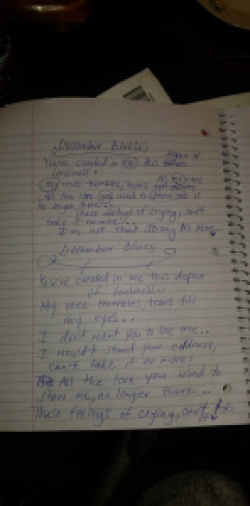 December Blues
You've created in me this depire of
lonliness.
My voice trembles, tears
All the love you used to show me is
no longer there...
These feelings of crying, can't
take it no more...
I'm not that strong
December Blues
You've created in me this depire
of lonliness..
My voice trembles, tears fill
my eyes..
I dont want you to see me..
I wouldn't stand your coldness,
can't take it no more!
All the love you used to
show me, no longer there...
These feelings of crying, can't